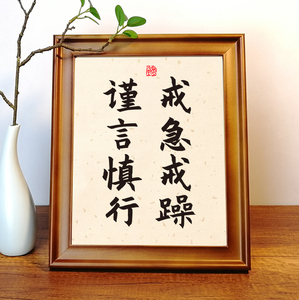 戒急戒躁
谨言慎行